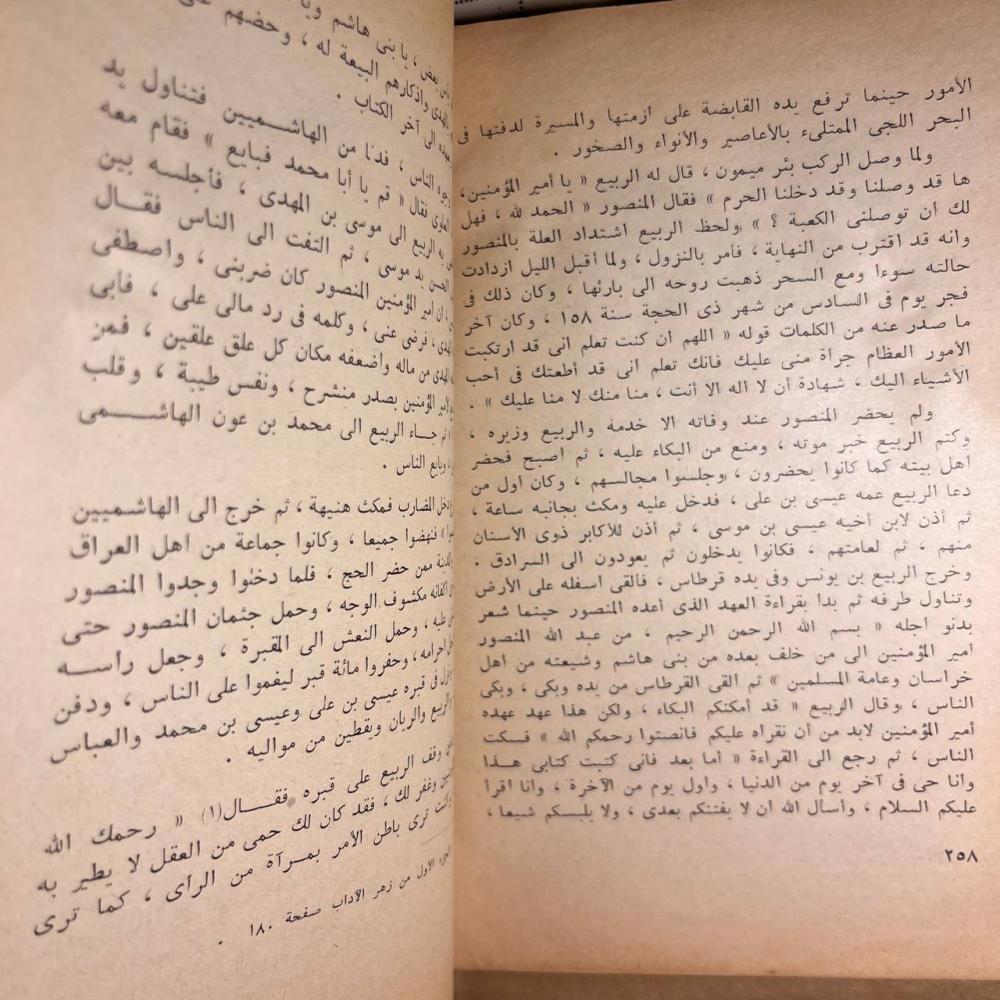 الأمور حينما ترفع يده القابضة على ازمتها والمسيرة لدفتها فى
البحر اللجى الممتلىء بالأعاصير والأنواء والصخور .
ولما وصل الركب بئر ميمون ، قال له الربيع « يا أمير المؤمنين،
ها قد وصلنا وقد دخلنا الحرم » فقال المنصور « الحمد لله ، فهل
لك أن توصلنى الكعبة ؟ » ولحظ الربيع اشتداد العلة بالمنصور
وانه قد اقترب من النهاية ، فأمر بالنزول ، ولما أقبل الليل ازدادت
حالته سوءا ومع السحر ذهبت روحه الى بارئها ، وكان ذلك فى
فجر يوم فى السادس من شهر ذى الحجة سنة ١٥٨ ، وكان آخر
ما صدر عنه من الكلمات قوله « اللهم ان كنت تعلم انى قد ارتكبت
الأمور العظام جراة منى عليك فانك تعلم انى قد أطعتك فى أحب
الأشياء اليك ، شهادة أن لا اله الا أنت ، منا منك لا منا عليك » .
ولم يحضر المنصور عند وفاته الا خدمه والربيع وزيره ،
وكتم الربيع خبر موته ، ومنع من البكاء عليه ، ثم اصبح فحضر
أهل بيته كما كانوا يحضرون ، وجلسوا مجالسهم ، وكان أول من
دعا الربيع عمه عيسى بن على ، فدخل عليه ومكث بجانبه ساعة ،
ثم أذن لابن أخيه عيسى بن موسى ، ثم أذن للأكابر ذوى الأسنان
منهم ، ثم لعامتهم ، فكانوا يدخلون ثم يعودون الى السرادق .
وخرج الربيع بن يونس وفى يده قرطاس ، فالقى اسفله على الأرض
وتناول طرفه ثم بدا بقراءة العهد الذى أعده المنصور حينما شعر
بدنو اجله « بسم الله الرحمن الرحيم ، من عبد الله المنصور
أمير المؤمنين الى من خلف بعده من بنى هاشم وشيعته من اهل
خراسان وعامة المسلمين » ثم القى القرطاس من يده وبكى ، وبكى
الناس ، وقال الربيع « قد أمكنكم البكاء ، ولكن هذا عهد عهده
أمير المؤمنين لابد من أن نقراه عليكم فانصتوا رحمكم الله » فسكت
الناس ، ثم رجع الى القراءة « أما بعد فانى كتبت كتابى هذا
وانا حى فى آخر يوم من الدنيا ، واول يوم من الآخرة ، وانا اقرأ
عليكم السلام ، وأسأل الله ان لا يفتنكم بعدى ، ولا يلبسكم شيعا ،
٢٥٨
بعض ، يا بنى هاشم ويا
المهدى واذكارهم البيعة له ، وحضهم على
الى آخر الكتاب .
وجوه الناس ، فدنا من الهاشميين فتناول يد
فقال « قم يا أبا محمد فبايع » فقام معه
به الربيع الى موسى بن المهدى ، فأجلسه بين
الحسن يد موسى ، ثم التفت الى الناس فقال
ان امير المؤمنين المنصور كان ضربنى ، واصطفى
المهدى ، فرضى عنى ، وكلمه فى رد مالى على ، فأبى
المهدى من ماله واضعفه مكان كل علق علقين ، فمن
لامير المؤمنين بصدر منشرح ، ونفس طيبة ، وقلب
ثم جاء الربيع الى محمد بن عون الهاشمى
وبايع الناس .
دخل المضارب فمكث هنيهة ، ثم خرج الى الهاشميين
فنهضوا جميعا ، وكانوا جماعة من أهل العراق
ممن حضر الحج ، فلما دخلوا وجدوا المنصور
اكفانه مكشوف الوجه ، وحمل جثمان المنصور حتى
عليه ، وحمل النعش الى المقبرة ، وجعل رأسه
احرامه ، وحفروا مائة قبر ليغموا على الناس ، ودفن
فى قبره عيسى بن على وعيسى بن محمد والعباس
والربيع والريان ويقطين من مواليه .
وقف الربيع على قبره فقال(١) « رحمك الله
وغفر لك ، فقد كان لك حمى من العقل لا يطير به
ترى باطن الأمر بمرآة من الرأى ، كما ترى
الجزء الأول من زهر الآداب صفحة ١٨٠ .